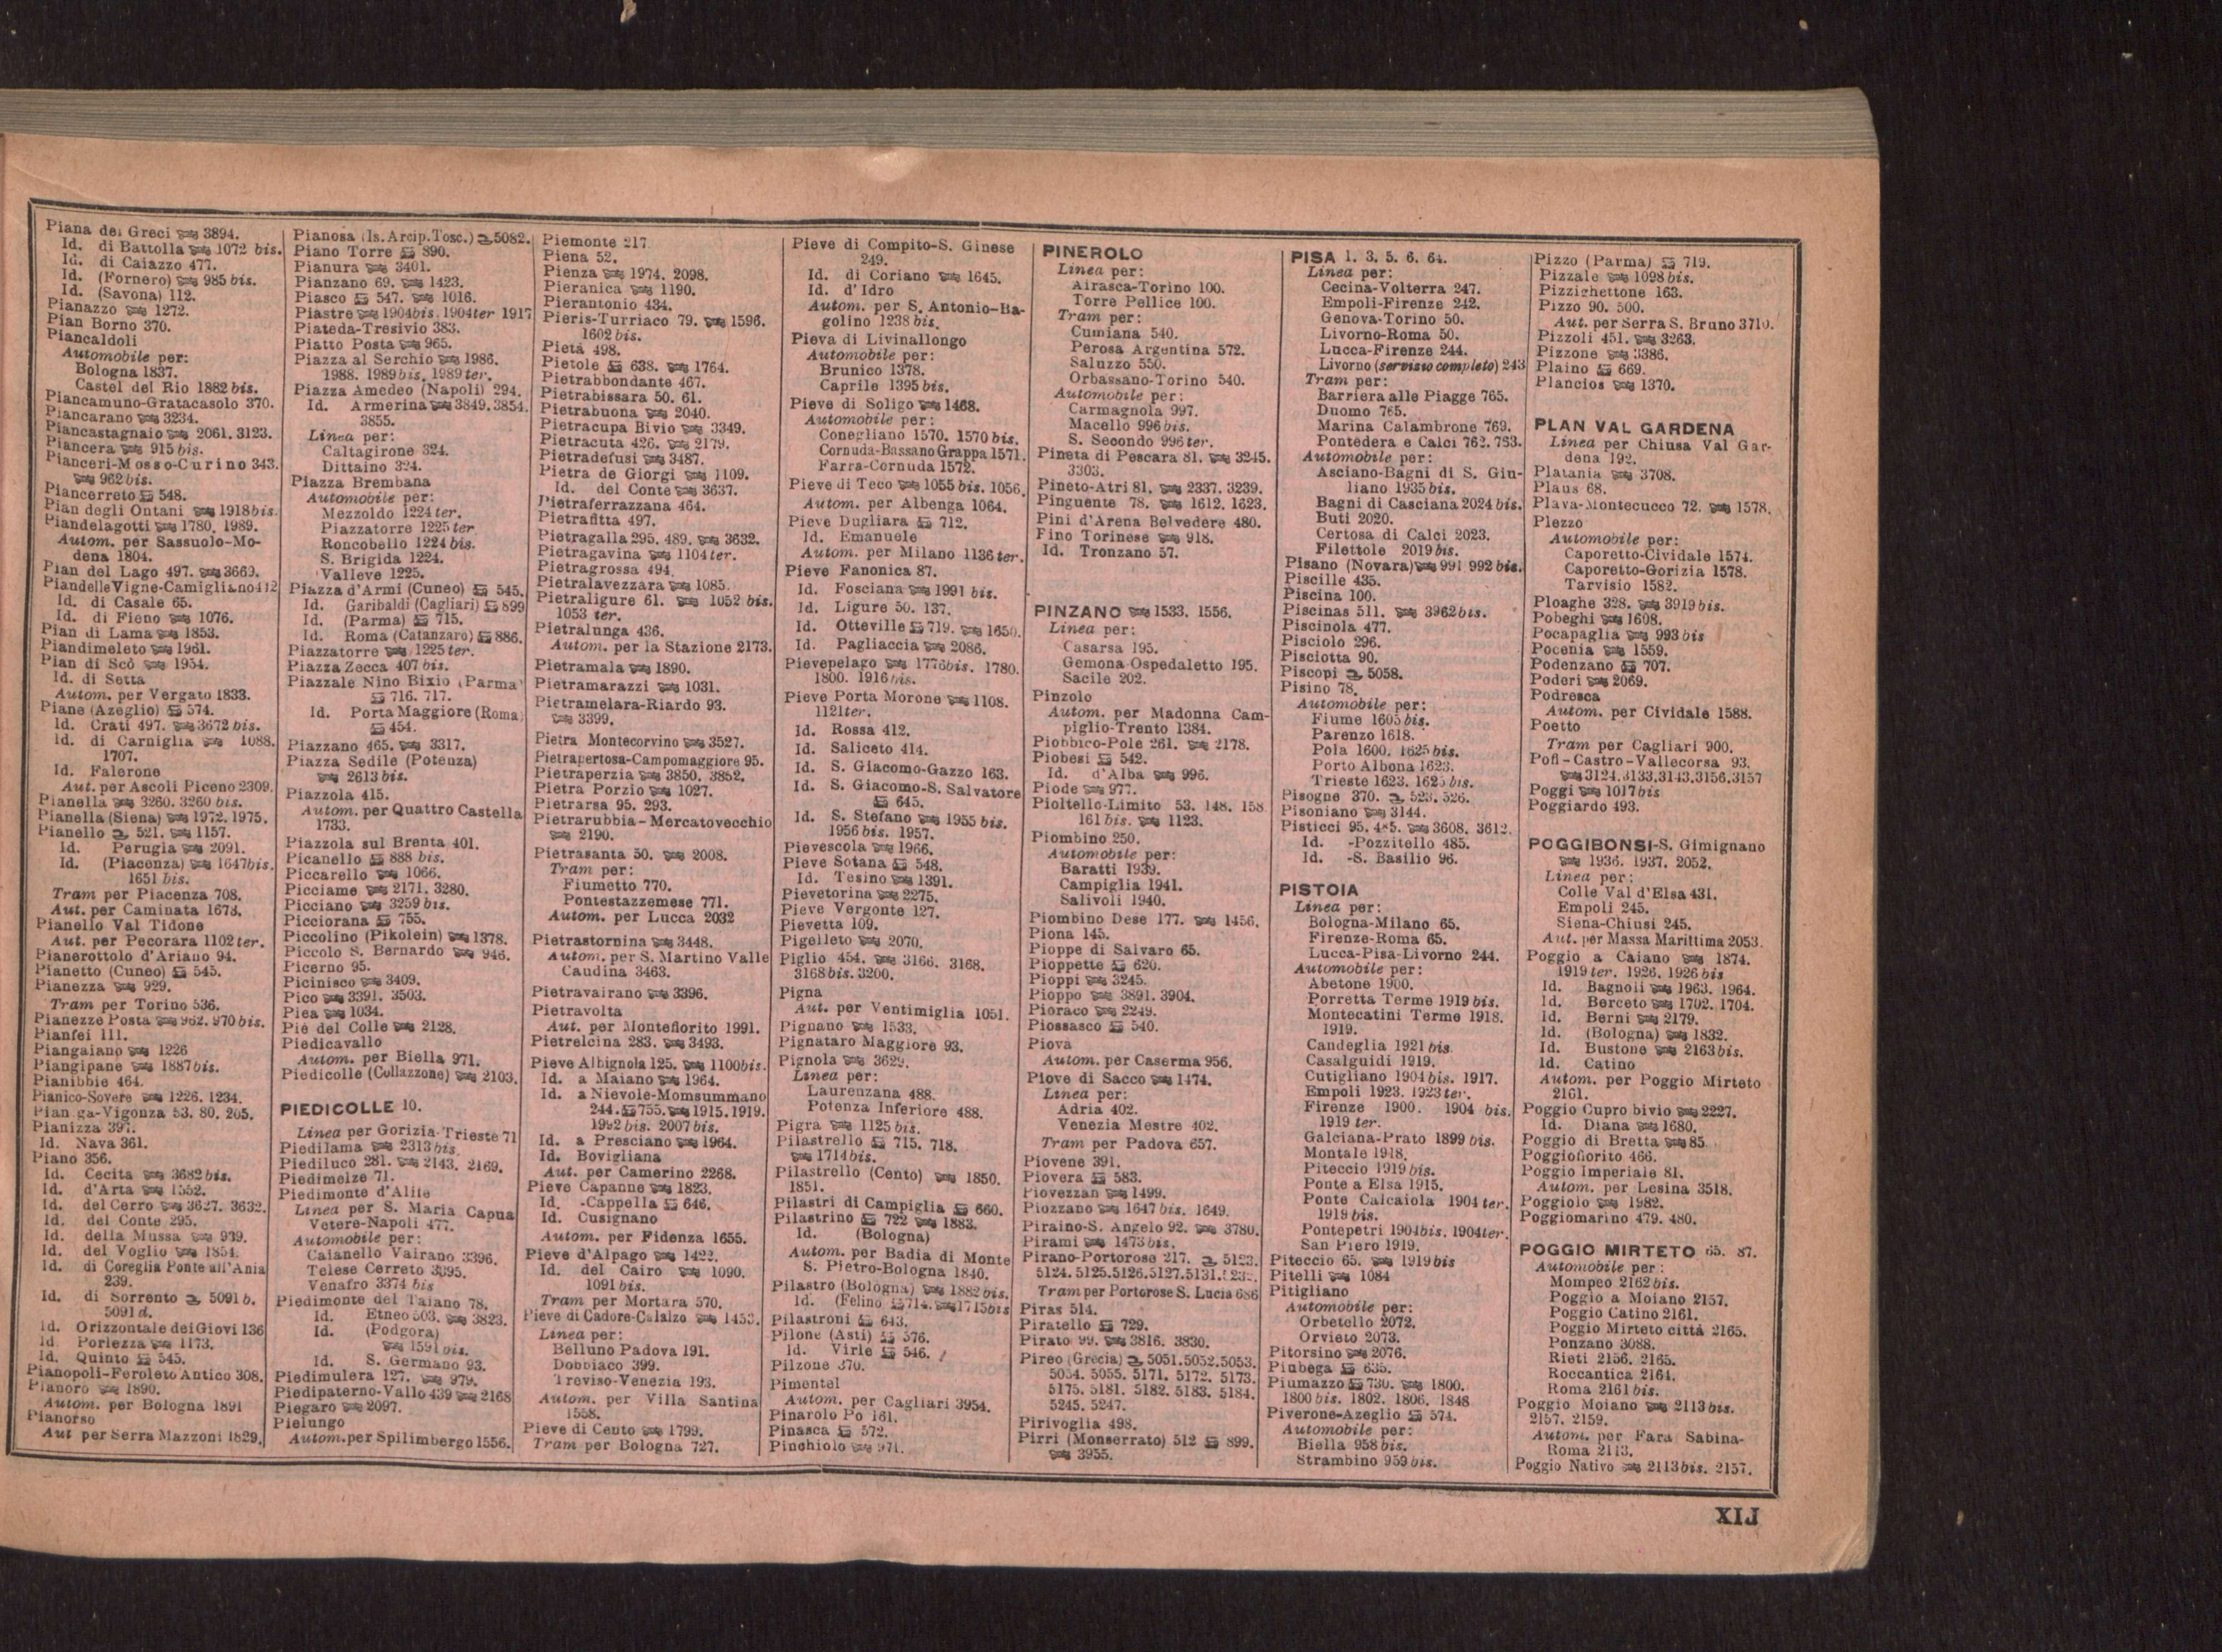 Piana dei Greci 3894.
Id. di Battolla 1072 bis.
Id. di Caiazzo 477.
Id. (Fornero) 985 bis.
Id. (Savona) 112.
Pianazzo 1272.
Pian Borno 370.
Piancaldoli
Automobile per:
Bologna 1837.
Castel del Rio 1882 bis.
Piancamuno-Gratacasolo 370.
Piancarano 3234.
Piancastagnaio 2061. 3123.
Piancera 915 bis.
Pianceri-Mosso-Curino 343.
962 bis.
Piancerreto 548.
Pian degli Ontani 1918 bis.
Piandelagotti 1780. 1989.
Autom. per Sassuolo-Mo-
dena 1804.
Pian del Lago 497. 3669.
Piandelle Vigne-Camigliano 412
Id. di Casale 65.
Id. di Fieno 1076.
Pian di Lama 1853.
Piandimeleto 1961.
Pian di Scò 1954.
Id. di Setta
Autom. per Vergato 1833.
Piane (Azeglio) 574.
Id. Crati 497. 3672 bis.
Id. di Carniglia 1088.
1707.
Id. Falerone
Aut. per Ascoli Piceno 2309.
Pianella 3260. 3260 bis.
Pianella (Siena) 1972. 1975.
Pianello 521. 1157.
Id. Perugia 2091.
Id. (Piacenza) 1647 bis.
1651 bis.
Tram per Piacenza 708.
Aut. per Caminata 1678.
Pianello Val Tidone
Aut. per Pecorara 1102 ter.
Pianerottolo d'Ariano 94.
Pianetto (Cuneo) 545.
Pianezza 929.
Tram per Torino 536.
Pianezze Posta 962. 970 bis.
Pianfei 111.
Piangaiano 1226
Piangipane 1887 bis.
Pianibbie 464.
Pianico-Sovere 1226. 1234.
Pian ga-Vigonza 53. 80. 205.
Pianizza 397.
Id. Nava 361.
Piano 356.
Id. Cecita 3682 bis.
Id. d'Arta 1552.
Id. del Cerro 3627. 3632.
Id. del Conte 295.
Id. della Mussa 939.
Id. del Voglio 1854.
Id. di Coreglia Ponte all'Ania
239.
Id. di Sorrento 5091 b.
5091 d.
Id. Orizzontale dei Giovi 136
Id. Porlezza 1173.
Id. Quinto 545.
Pianopoli-Feroleto Antico 308.
Pianoro 1890.
Autom. per Bologna 1891
Pianorso
Aut per Serra Mazzoni 1829.
Pianosa (Is. Arcip. Tosc.) 5082.
Piano Torre 890.
Pianura 3401.
Pianzano 69. 1423.
Piasco 547. 1016.
Piastre 1904 bis. 1904 ter 1917
Piateda-Tresivio 383.
Piatto Posta 965.
Piazza al Serchio 1986.
1988. 1989 bis. 1989 ter.
Piazza Amedeo (Napoli) 294.
Id. Armerina 3849. 3854.
3855.
Linea per:
Caltagirone 324.
Dittaino 324.
Piazza Brembana
Automobile per:
Mezzoldo 1224 ter.
Piazzatorre 1225 ter
Roncobello 1224 bis.
S. Brigida 1224.
Valleve 1225.
Piazza d'Armi (Cuneo) 545.
Id. Garibaldi (Cagliari) 899
Id. (Parma) 715.
Id. Roma (Catanzaro) 886.
Piazzatorre 1225 ter.
Piazza Zecca 407 bis.
Piazzale Nino Bixio (Parma)
716. 717.
Id. Porta Maggiore (Roma)
454.
Piazzano 465. 3317.
Piazza Sedile (Potenza)
2613 bis.
Piazzola 415.
Autom. per Quattro Castella
1733.
Piazzola sul Brenta 401.
Picanello 888 bis.
Piccarello 1066.
Picciame 2171. 3280.
Picciano 3259 bis.
Picciorana 755.
Piccolino (Pikolein) 1378.
Piccolo S. Bernardo 946.
Picerno 95.
Picinisco 3409.
Pico 3391. 3503.
Piea 1034.
Piè del Colle 2128.
Piedicavallo
Autom. per Biella 971.
Piedicolle (Collazzone) 2103.
PIEDICOLLE 10.
Linea per Gorizia-Trieste 71
Piedilama 2313 bis.
Piediluco 281. 2143. 2169.
Piedimelze 71.
Piedimonte d'Alife
Linea per S. Maria Capua
Vetere-Napoli 477.
Automobile per:
Caianello Vairano 3396.
Telese Cerreto 3395.
Venafro 3374 bis
Piedimonte del Taiano 78.
Id. Etneo 503. 3823.
Id. (Podgora)
1591 bis.
Id. S. Germano 93.
Piedimulera 127. 979.
Piedipaterno-Vallo 439 2168
Piegaro 2097.
Pielungo
Autom. per Spilimbergo 1556.
Piemonte 217
Piena 52.
Pienza 1974. 2098.
Pieranica 1190.
Pierantonio 434.
Pieris-Turriaco 79. 1596.
1602 bis.
Pietà 498.
Pietole 638. 1764.
Pietrabbondante 467.
Pietrabissara 50. 61.
Pietrabuona 2040.
Pietracupa Bivio 3349.
Pietracuta 426. 2179.
Pietradefusi 3487.
Pietra de Giorgi 1109.
Id. del Conte 3637.
Pietraferrazzana 464.
Pietrafitta 497.
Pietragalla 295. 489. 3632.
Pietragavina 1104 ter.
Pietragrossa 494
Pietralavezzara 1085.
Pietraligure 61. 1052 bis.
1053 ter.
Pietralunga 436.
Autom. per la Stazione 2173.
Pietramala 1890.
Pietramarazzi 1031.
Pietramelara-Riardo 93.
3399.
Pietra Montecorvino 3527.
Pietrapertosa-Campomaggiore 95.
Pietraperzia 3850. 3852.
Pietra Porzio 1027.
Pietrarsa 95. 293.
Pietrarubbia-Mercatovecchio
2190.
Pietrasanta 50. 2008.
Tram per:
Fiumetto 770.
Pontestazzemese 771.
Autom. per Lucca 2032
Pietrastornina 3448.
Autom. per S. Martino Valle
Caudina 3463.
Pietravairano 3396.
Pietravolta
Aut. per Montefiorito 1991.
Pietrelcina 283. 3493.
Pieve Albignola 125. 1100 bis.
Id. a Maiano 1964.
Id. a Nievole-Momsummano
244. 755. 1915. 1919.
1992 bis. 2007 bis.
Id. a Presciano 1964.
Id. Bovigliana
Aut. per Camerino 2268.
Pieve Capanne 1823.
Id. -Cappella 646.
Id. Cusignano
Autom. per Fidenza 1655.
Pieve d'Alpago 1422.
Id. del Cairo 1090.
1091 bis.
Tram per Mortara 570.
Pieve di Cadore-Calalzo 1453.
Linea per:
Belluno Padova 191.
Dobbiaco 399.
Treviso-Venezia 193.
Autom. per Villa Santina
1558.
Pieve di Cento 1799.
Tram per Bologna 727.
Pieve di Compito-S. Ginese
249.
Id. di Coriano 1645.
Id. d'Idro
Autom. per S. Antonio-Ba-
golino 1238 bis.
Pieva di Livinallongo
Automobile per:
Brunico 1378.
Caprile 1395 bis.
Pieve di Soligo 1468.
Automobile per:
Conegliano 1570. 1570 bis.
Cornuda-Bassano Grappa 1571.
Farra-Cornuda 1572.
Pieve di Teco 1055 bis. 1056.
Autom. per Albenga 1064.
Pieve Dugliara 712.
Id. Emanuele
Autom. per Milano 1136 ter.
Pieve Fanonica 87.
Id. Fosciana 1991 bis.
Id. Ligure 50. 137.
Id. Otteville 719. 1650.
Id. Pagliaccia 2086.
Pievepelago 1776 bis. 1780.
1800. 1916 bis.
Pieve Porta Morone 1108.
1121 ter.
Id. Rossa 412.
Id. Saliceto 414.
Id. S. Giacomo-Gazzo 163.
Id. S. Giacomo-S. Salvatore
645.
Id. S. Stefano 1955 bis.
1956 bis. 1957.
Pievescola 1966.
Pieve Sotana 548.
Id. Tesino 1391.
Pievetorina 2275.
Pieve Vergonte 127.
Pievetta 109.
Pigelleto 2070.
Piglio 454. 3166. 3168.
3168 bis. 3200.
Pigna
Aut. per Ventimiglia 1051.
Pignano 1533.
Pignataro Maggiore 93.
Pignola 3629.
Linea per:
Laurenzana 488.
Potenza Inferiore 488.
Pigra 1125 bis.
Pilastrello 715. 718.
1714 bis.
Pilastrello (Cento) 1850.
1851.
Pilastri di Campiglia 660.
Pilastrino 722 1883.
Id. (Bologna)
Autom. per Badia di Monte
S. Pietro-Bologna 1840.
Pilastro (Bologna) 1882 bis.
Id. (Felino) 714. 1715 bis
Pilastroni 643.
Pilone (Asti) 576.
Id. Virle 546.
Pilzone 370.
Pimentel
Autom. per Cagliari 3954.
Pinarolo Po 161.
Pinasca 572.
Pinchiolo 971.
PINEROLO
Linea per:
Airasca-Torino 100.
Torre Pellice 100.
Tram per:
Cumiana 540.
Perosa Argentina 572.
Saluzzo 550.
Orbassano-Torino 540.
Automobile per:
Carmagnola 997.
Macello 996 bis.
S. Secondo 996 ter.
Pineta di Pescara 81. 3245.
3303.
Pineto-Atri 81. 2337. 3239.
Pinguente 78. 1612. 1623.
Pini d'Arena Belvedere 480.
Fino Torinese 918.
Id. Tronzano 57.
PINZANO 1533. 1556.
Linea per:
Casarsa 195.
Gemona-Ospedaletto 195.
Sacile 202.
Pinzolo
Autom. per Madonna Cam-
piglio-Trento 1384.
Piobbico-Pole 261. 2178.
Piobesi 542.
Id. d'Alba 996.
Piode 977.
Pioltello-Limito 53. 148. 158
161 bis. 1123.
Piombino 250.
Automobile per:
Baratti 1939.
Campiglia 1941.
Salivoli 1940.
Piombino Dese 177. 1456.
Piona 145.
Pioppe di Salvaro 65.
Pioppette 620.
Pioppi 3245.
Pioppo 3891. 3904.
Pioraco 2249.
Piossasco 540.
Piova
Autom. per Caserma 956.
Piove di Sacco 1474.
Linea per:
Adria 402.
Venezia Mestre 402.
Tram per Padova 657.
Piovene 391.
Piovera 583.
Piovezzan 1499.
Piozzano 1647 bis. 1649.
Piraino-S. Angelo 92. 3780.
Pirami 1473 bis.
Pirano-Portorose 217. 5123.
5124. 5125. 5126. 5127. 5131.
Tram per Portorose S. Lucia 686
Piras 514.
Piratello 729.
Pirato 99. 3816. 3830.
Pireo (Grecia) 5051. 5052. 5053.
5054. 5055. 5171. 5172. 5173.
5175. 5181. 5182. 5183. 5184.
5245. 5247.
Pirivoglia 498.
Pirri (Monserrato) 512 899.
3955.
PISA 1. 3. 5. 6. 64.
Linea per:
Cecina-Volterra 247.
Empoli-Firenze 242.
Genova-Torino 50.
Livorno-Roma 50.
Lucca-Firenze 244.
Livorno (servizio completo) 243
Tram per:
Barriera alle Piagge 765.
Duomo 765.
Marina Calambrone 769.
Pontedera e Calci 762. 763.
Automobile per:
Asciano-Bagni di S. Giu-
liano 1935 bis.
Bagni di Casciana 2024 bis.
Buti 2020.
Certosa di Calci 2023.
Filettole 2019 bis.
Pisano (Novara) 991 992 bis.
Piscille 435.
Piscina 100.
Piscinas 511. 3962 bis.
Piscinola 477.
Pisciolo 296.
Pisciotta 90.
Piscopi 5058.
Pisino 78.
Automobile per:
Fiume 1605 bis.
Parenzo 1618.
Pola 1600. 1625 bis.
Porto Albona 1623.
Trieste 1623. 1625 bis.
Pisogne 370. 523. 526.
Pisoniano 3144.
Pisticci 95. 485. 3608. 3612.
Id. -Pozzitello 485.
Id. -S. Basilio 96.
PISTOIA
Linea per:
Bologna-Milano 65.
Firenze-Roma 65.
Lucca-Pisa-Livorno 244.
Automobile per:
Abetone 1900.
Porretta Terme 1919 bis.
Montecatini Terme 1918.
1919.
Candeglia 1921 bis.
Casalguidi 1919.
Cutigliano 1904 bis. 1917.
Empoli 1923. 1923 ter.
Firenze 1900. 1904 bis.
1919 ter.
Galciana-Prato 1899 bis.
Montale 1918.
Piteccio 1919 bis.
Ponte a Elsa 1915.
Ponte Calcaiola 1904 ter.
1919 bis.
Pontepetri 1904 bis. 1904 ter.
San Piero 1919.
Piteccio 65. 1919 bis
Pitelli 1084
Pitigliano
Automobile per:
Orbetello 2072.
Orvieto 2073.
Pitorsino 2076.
Piubega 635.
Piumazzo 730. 1800.
1800 bis. 1802. 1806. 1848
Piverone-Azeglio 574.
Automobile per:
Biella 958 bis.
Strambino 959 bis.
Pizzo (Parma) 719.
Pizzale 1098 bis.
Pizzighettone 163.
Pizzo 90. 500.
Aut. per Serra S. Bruno 3710.
Pizzoli 451. 3263.
Pizzone 3386.
Plaino 669.
Plancios 1370.
PLAN VAL GARDENA
Linea per Chiusa Val Gar-
dena 192.
Platania 3708.
Plaus 68.
Plava-Montecucco 72. 1578.
Plezzo
Automobile per:
Caporetto-Cividale 1574.
Caporetto-Gorizia 1578.
Tarvisio 1582.
Ploaghe 328. 3919 bis.
Pobeghi 1608.
Pocapaglia 993 bis
Pocenia 1559.
Podenzano 707.
Poderi 2069.
Podresca
Autom. per Cividale 1588.
Poetto
Tram per Cagliari 900.
Pofi-Castro-Vallecorsa 93.
3124. 3133. 3143. 3156. 3157
Poggi 1017 bis
Poggiardo 493.
POGGIBONSI-S. Gimignano
1936. 1937. 2052.
Linea per:
Colle Val d'Elsa 431.
Empoli 245.
Siena-Chiusi 245.
Aut. per Massa Marittima 2053.
Poggio a Caiano 1874.
1919 ter. 1926. 1926 bis
Id. Bagnoli 1963. 1964.
Id. Berceto 1702. 1704.
Id. Berni 2179.
Id. (Bologna) 1832.
Id. Bustone 2163 bis.
Id. Catino
Autom. per Poggio Mirteto
2161.
Poggio Cupro bivio 2227.
Id. Diana 1680.
Poggio di Bretta 85
Poggiofiorito 466.
Poggio Imperiale 81.
Autom. per Lesina 3518.
Poggiolo 1982.
Poggiomarino 479. 480.
POGGIO MIRTETO 65. 87.
Automobile per:
Mompeo 2162 bis.
Poggio a Moiano 2157.
Poggio Catino 2161.
Poggio Mirteto città 2165.
Ponzano 3088.
Rieti 2156. 2165.
Roccantica 2164.
Roma 2161 bis.
Poggio Moiano 2113 bis.
2157. 2159.
Autom. per Fara Sabina-
Roma 2113.
Poggio Nativo 2113 bis. 2157.
XIJ